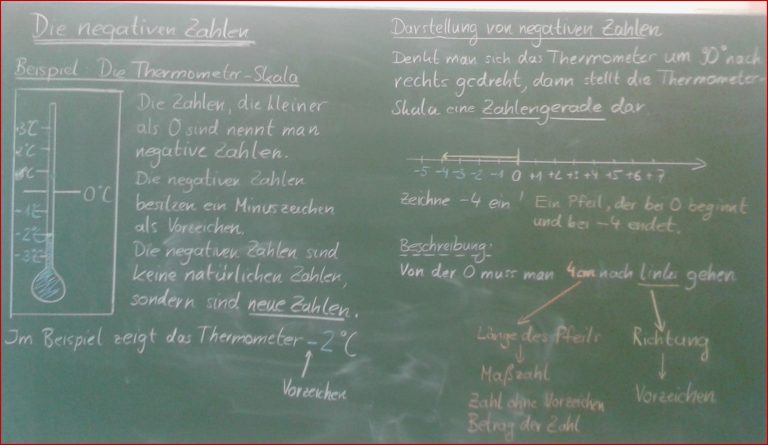 Die negativen Zahlen
Beispiel Die Thermometer-Skala
Die Zahlen, die kleiner
als 0 sind nennt man
negative Zahlen.
Die negativen Zahlen
besitzen ein Minuszeichen
als Vorzeichen.
Die negativen Zahlen sind
keine natürlichen Zahlen,
sondern sind neue Zahlen.
+3°C
+2°C
0°C
-1°C
-2°C
-3°C
Im Beispiel zeigt das Thermometer -2°C
Vorzeichen
Darstellung von negativen Zahlen
Denkt man sich das Thermometer um 90° nach
rechts gedreht, dann stellt die Thermometer-
Skala eine Zahlengerade dar.
-5 -4 -3 -2 -1 0 +1 +2 +3 +4 +5 +6 +7
zeichne -4 ein! Ein Pfeil, der bei 0 beginnt
und bei -4 endet.
Beschreibung:
Von der 0 muss man 4cm nach links gehen
Länge des Pfeils
Maßzahl
Zahl ohne Vorzeichen
Betrag der Zahl
Richtung
Vorzeichen